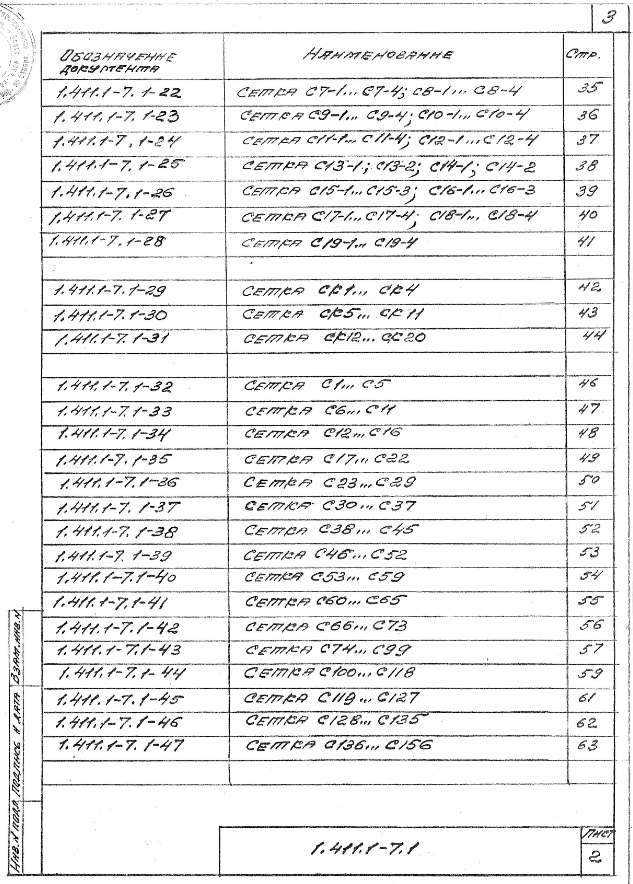 3
Обозначение документа Наименование Стр.
1.411.1-7.1-22 Сетка С7-1... С7-4; С8-1... С8-4 35
1.411.1-7.1-23 Сетка С9-1... С9-4; С10-1... С10-4 36
1.411.1-7.1-24 Сетка С11-1... С11-4; С12-1... С12-4 37
1.411.1-7.1-25 Сетка С13-1; С13-2; С14-1; С14-2 38
1.411.1-7.1-26 Сетка С15-1... С15-3; С16-1... С16-3 39
1.411.1-7.1-27 Сетка С17-1... С17-4; С18-1... С18-4 40
1.411.1-7.1-28 Сетка С19-1... С19-4 41
1.411.1-7.1-29 Сетка СК1... СК4 42
1.411.1-7.1-30 Сетка СК5... СК11 43
1.411.1-7.1-31 Сетка СК12... СК20 44
1.411.1-7.1-32 Сетка С1... С5 46
1.411.1-7.1-33 Сетка С6... С11 47
1.411.1-7.1-34 Сетка С12... С16 48
1.411.1-7.1-35 Сетка С17... С22 49
1.411.1-7.1-36 Сетка С23... С29 50
1.411.1-7.1-37 Сетка С30... С37 51
1.411.1-7.1-38 Сетка С38... С45 52
1.411.1-7.1-39 Сетка С46... С52 53
1.411.1-7.1-40 Сетка С53... С59 54
1.411.1-7.1-41 Сетка С60... С65 55
1.411.1-7.1-42 Сетка С66... С73 56
1.411.1-7.1-43 Сетка С74... С99 57
1.411.1-7.1-44 Сетка С100... С118 59
1.411.1-7.1-45 Сетка С119... С127 61
1.411.1-7.1-46 Сетка С128... С135 62
1.411.1-7.1-47 Сетка С136... С156 63
Инв. N подл. Подпись и дата Взам. инв. N
1.411.1-7.1
Лист
2